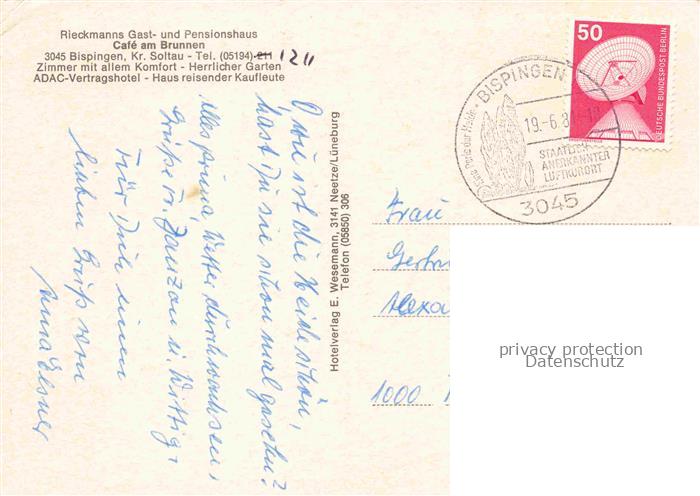 Rieckmanns Gast- und Pensionshaus
Café am Brunnen
3045 Bispingen, Kr. Soltau - Tel. (05194) 211 1211
Zimmer mit allem Komfort - Herrlicher Garten
ADAC-Vertragshotel - Haus reisender Kaufleute
O wie ist die Heide schön,
hast Du sie schon mal gesehn?
Alles prima, Wetter durchwachsen,
Grüße v.
u. Wittig.
Für Dich einen
lieben Gruß von
Anna Elsner
Hotelverlag E. Wesemann, 3141 Neetze/Lüneburg
Telefon (05850) 306
50
DEUTSCHE BUNDESPOST BERLIN
BISPINGEN
19.-6.8
STAATLICH
ANERKANNTER
LUFTKURORT
3045
Frau
Gertr
Alexa
1000
privacy protection
Datenschutz